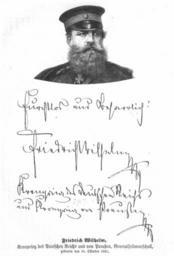 Furchtlos und beharrlich!
Friedrich Wilhelm
Kronprinz des Deutschen Reichs
und Kronprinz von Preußen
Friedrich Wilhelm,
Kronprinz des Deutschen Reichs und von Preußen, Generalfeldmarschall,
geboren am 18. Oktober 1831.